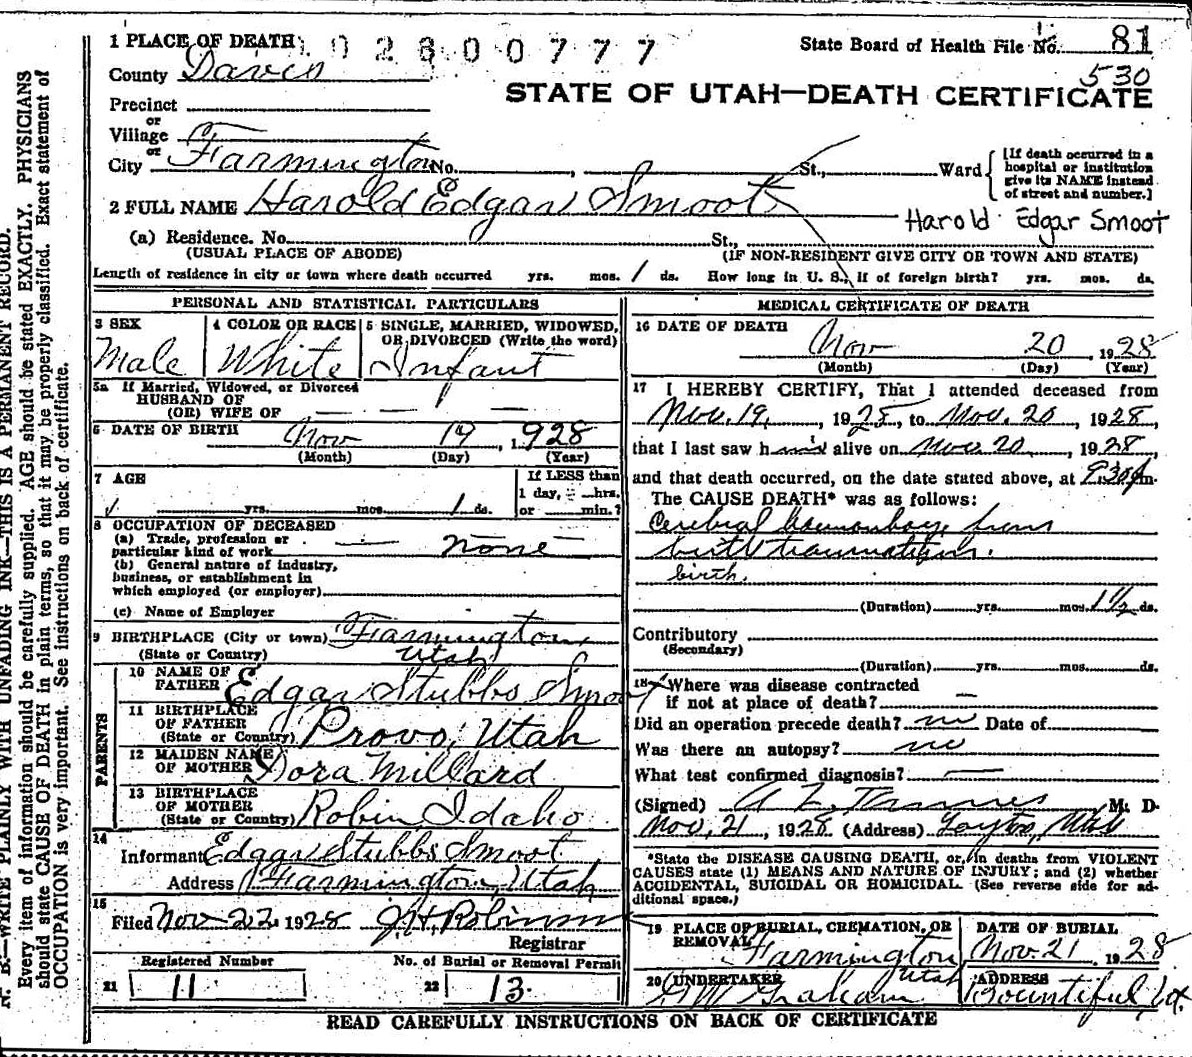 1 PLACE OF DEATH
0 2 8 0 0 7 7 7
State Board of Health File No. 81
530
County Davis
STATE OF UTAH—DEATH CERTIFICATE
Precinct
or
Village
or
City Farmington No. , St., Ward
[If death occurred in a
hospital or institution
give its NAME instead
of street and number.]
2 FULL NAME Harold Edgar Smoot
Harold Edgar Smoot
(a) Residence. No. St.,
(USUAL PLACE OF ABODE) (IF NON-RESIDENT GIVE CITY OR TOWN AND STATE)
Length of residence in city or town where death occurred yrs. mos. 1 ds. How long in U. S., if of foreign birth? yrs. mos. ds.
PERSONAL AND STATISTICAL PARTICULARS
3 SEX
Male
4 COLOR OR RACE
White
5 SINGLE, MARRIED, WIDOWED,
OR DIVORCED (Write the word)
Infant
5a If Married, Widowed, or Divorced
HUSBAND OF
(OR) WIFE OF — — —
6 DATE OF BIRTH Nov 19, 1928
(Month) (Day) (Year)
7 AGE
If LESS than
1 day, hrs.
or min.?
yrs. mos. 1 ds.
8 OCCUPATION OF DECEASED
(a) Trade, profession or
particular kind of work none
(b) General nature of industry,
business, or establishment in
which employed (or employer)
(c) Name of Employer
9 BIRTHPLACE (City or town) Farmington
(State or Country) Utah
PARENTS
10 NAME OF
FATHER Edgar Stubbs Smoot
11 BIRTHPLACE
OF FATHER
(State or Country) Provo, Utah
12 MAIDEN NAME
OF MOTHER Dora Millard
13 BIRTHPLACE
OF MOTHER
(State or Country) Robin Idaho
14
Informant Edgar Stubbs Smoot
Address Farmington, Utah
15
Filed Nov 22 1928 J. H. Robinson
Registrar
Registered Number No. of Burial or Removal Permit
21 11 22 13
MEDICAL CERTIFICATE OF DEATH
16 DATE OF DEATH
Nov 20, 1928
(Month) (Day) (Year)
17 I HEREBY CERTIFY, That I attended deceased from
Nov. 19, 1928, to Nov. 20, 1928,
that I last saw him alive on Nov. 20, 1928,
and that death occurred, on the date stated above, at 9:30 p m.
The CAUSE DEATH* was as follows:
Cerebral haemorrhage from
birth
birth.
(Duration) yrs. mos. 1½ ds.
Contributory
(Secondary)
(Duration) yrs. mos. ds.
18 Where was disease contracted
if not at place of death? —
Did an operation precede death? no Date of
Was there an autopsy? no
What test confirmed diagnosis? —
(Signed) M. D.
Nov. 21, 1928 (Address) Layton, Utah
*State the DISEASE CAUSING DEATH, or, in deaths from VIOLENT
CAUSES state (1) MEANS AND NATURE OF INJURY; and (2) whether
ACCIDENTAL, SUICIDAL OR HOMICIDAL. (See reverse side for ad-
ditional space.)
19 PLACE OF BURIAL, CREMATION, OR
REMOVAL
Farmington
Utah
DATE OF BURIAL
Nov. 21 1928
20 UNDERTAKER
Graham
ADDRESS
Bountiful, Ut.
READ CAREFULLY INSTRUCTIONS ON BACK OF CERTIFICATE
N. B.—WRITE PLAINLY WITH UNFADING INK—THIS IS A PERMANENT RECORD.
Every item of information should be carefully supplied. AGE should be stated EXACTLY. PHYSICIANS
should state CAUSE OF DEATH in plain terms, so that it may be properly classified. Exact statement of
OCCUPATION is very important. See instructions on back of certificate.